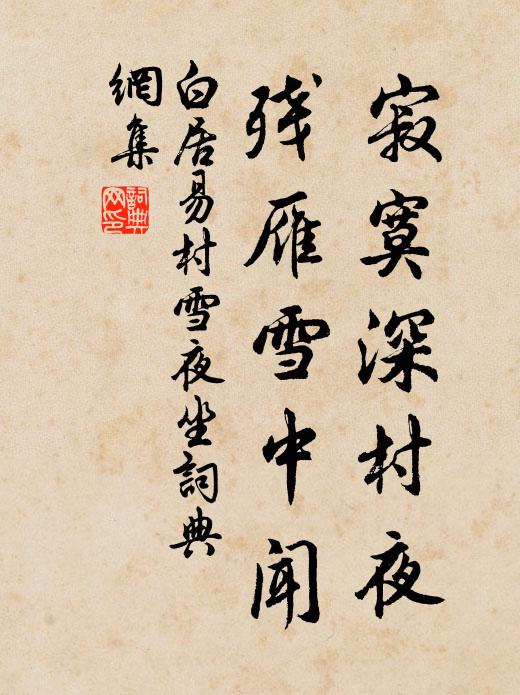 寂寞深村夜
残雁雪中闻
白居易村雪夜坐詞典
網集
詞典
网印